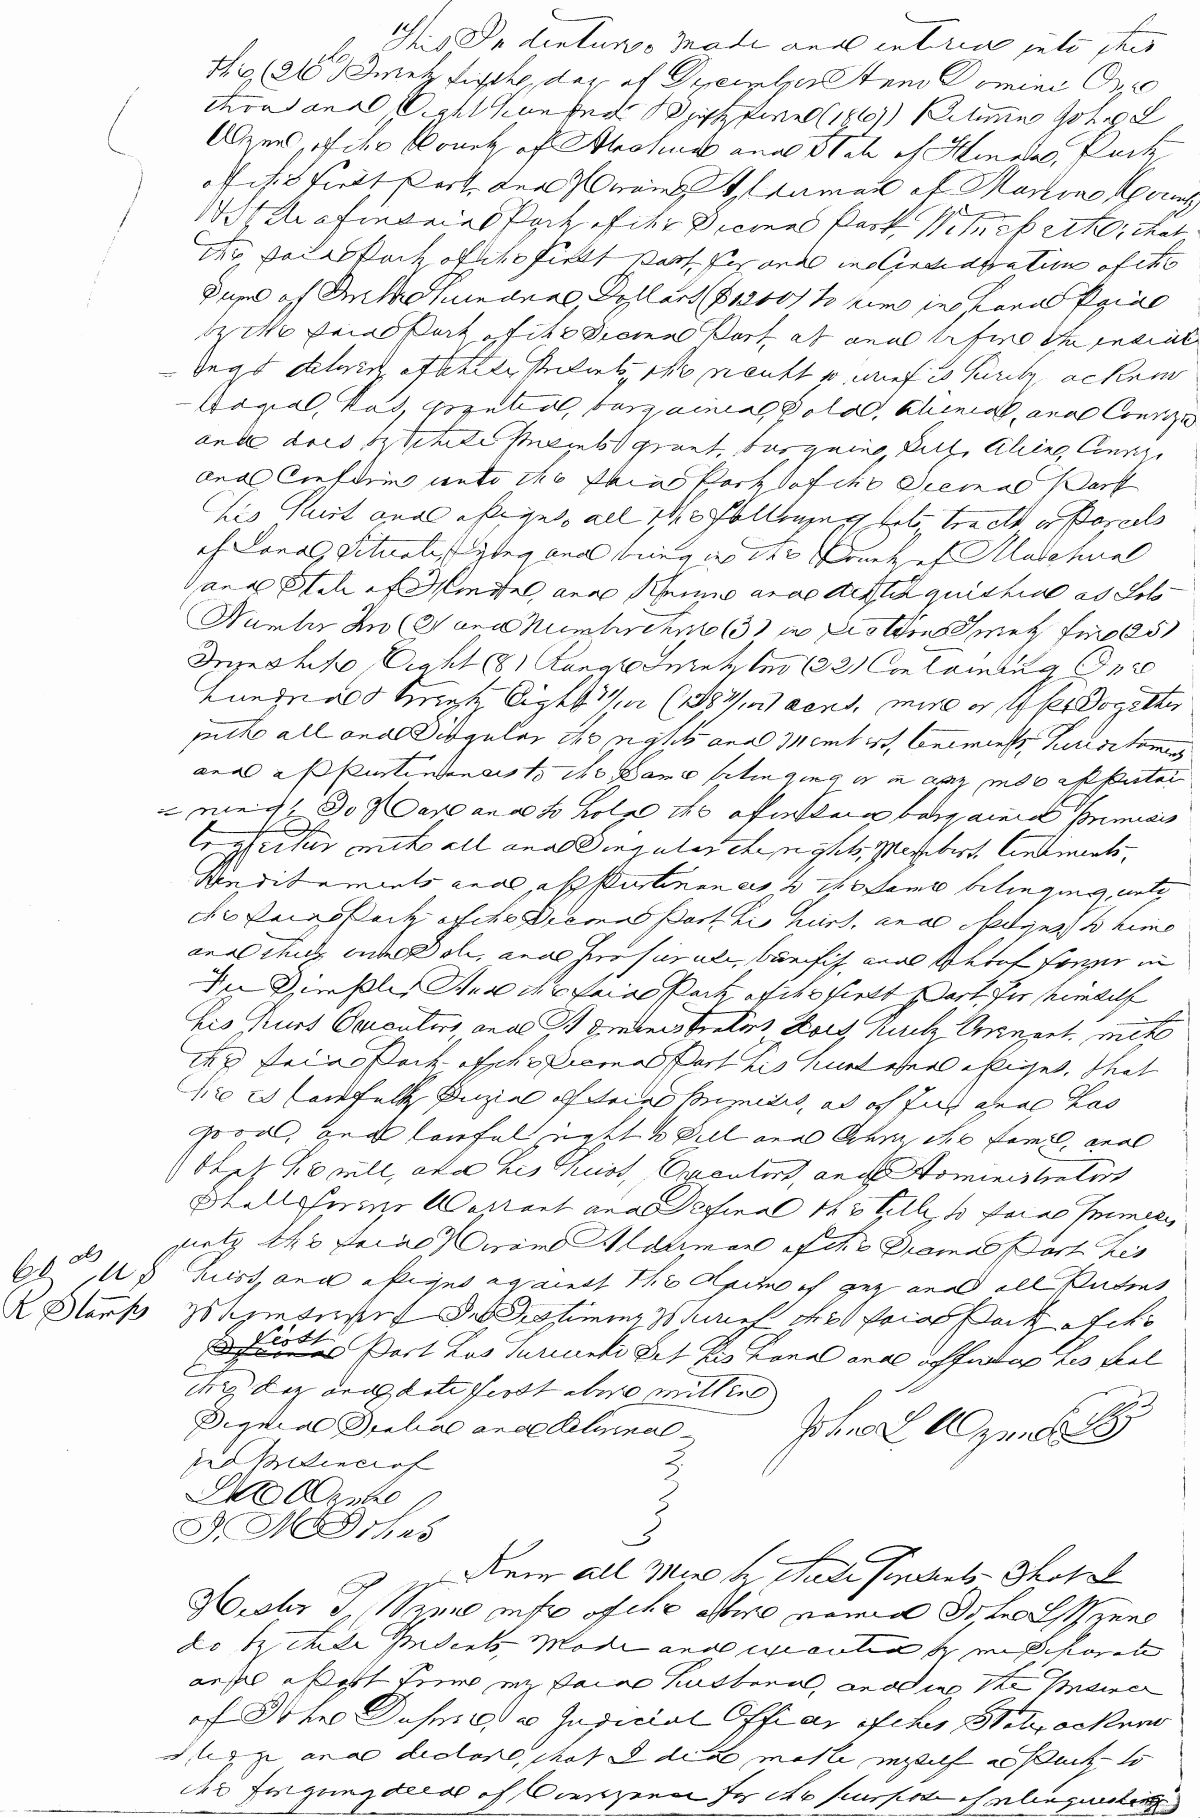 This Indenture made and entered into this
the (26th) Twenty sixth day of December Anno Domini One
thousand Eight hundred & Sixty seven (1867) Between John L
Wynne, of the County of Alachua and State of Florida, Party
of the first part, and Hiram Alderman of Marion County
& State aforesaid Party of the Second Part, Witnesseth; that
the said Party of the first part, for and in Consideration of the
Sum of Twelve hundred Dollars ($1200) to him in hand Paid
by the said Party of the Second Part, at and before the enseal
= ings & delivery of these Presents, the receipt whereof is hereby acknow
- ledged, has, granted, bargained, Sold, aliened, and Conveyed
and does by these Presents grant, bargain, Sell, Alien, Convey,
and Confirm unto the said Party of the Second Part
his heirs and assigns, all the following lots, tracts or Parcels
of Land, Situate, lying and being in the County of Alachua
and State of Florida, and Known and distinguished as Lots
Number Two (2) and Number three (3) in Section Twenty five (25)
Township Eight (8) Range Twenty two (22) Containing One
hundred & twenty Eight acres, more or less Together
with all and Singular the rights and members, tenements, hereditaments
and appurtenances to the Same belonging or in any wise appertai
= ning: To Have and to hold the aforesaid bargained Premises
together with all and Singular the rights, Members, tenements,
Hereditaments and appurtenances to the Same belonging, unto
the said Party of the Second Part, his heirs, and assigns, to him
and their own Sole, and Proper use, benefit, and behoof forever in
Fee Simple, And the said Party of the first Part, for himself
his heirs Executors, and Administrators, does hereby Covenant, with
the said Party of the Second Part his heirs and assigns, that
he is lawfully Seized of said Premises, as of Fee, and has
good, and lawful right to Sell and Convey the same, and
that he will, and his heirs, Executors, and Administrators
Shall forever Warrant and Defend the title, to said Premises,
unto the said Hiram Alderman of the Second Part his
heirs, and assigns against the claims of any and all Persons
Whomsoever In Testimony Whereof the said Party of the
first
Second Part has hereunto Set his hand and affixed his seal
the day and date first above written
60 cts U S
R Stamps
Signed Sealed and delivered
John L Wynne
in Presence of
Wynne
J. M Johns
Know all Men by these Presents That I
Hester J, Wynne wife of the above named John L Wynne
do by these Presents, Made and executed by me Separate
and apart from my said husband, and in the Presence
of John Dupree, a Judicial Officer of this State, acknow
= ledge and declare, that I did make myself a Party to
the foregoing deed of Conveyance for the purpose of relinquishing